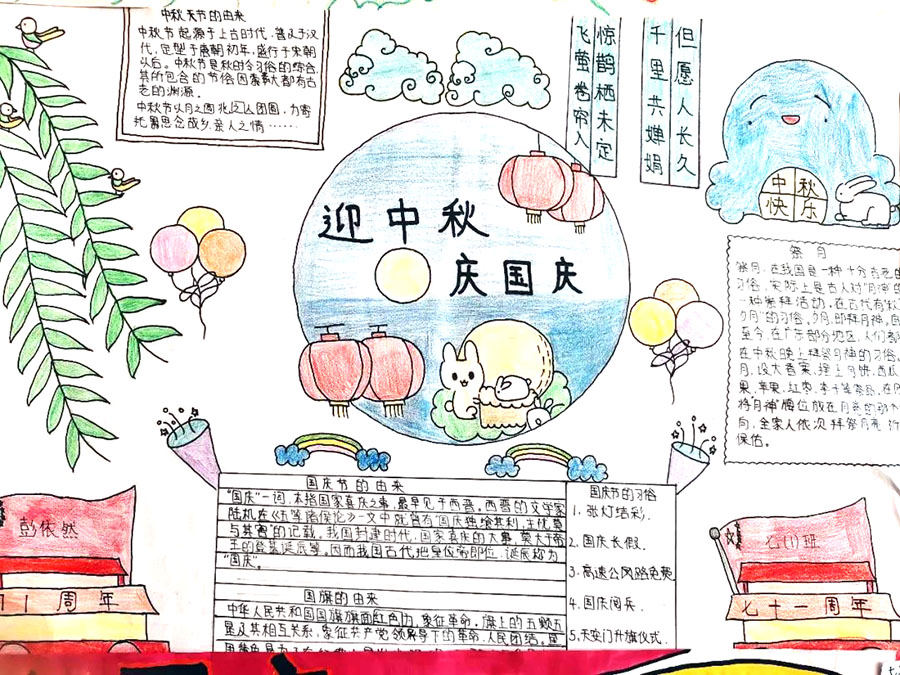 中秋节的由来
中秋节起源于上古时代,普及于汉
代,定型于唐朝初年,盛行于宋朝
以后。中秋节是秋时令习俗的综合,
其所包含的节俗因素大都有古
老的渊源。
中秋节以月之圆兆人团圆,为寄
托思念故乡,亲人之情……
惊鹊栖未定
飞萤卷帘入
但愿人长久
千里共婵娟
中秋
快乐
迎中秋
庆国庆
祭月
祭月,在我国是一种十分古老的
习俗,实际上是古人对"月神"的
一种崇拜活动,在古代有"秋
夕月"的习俗。夕月,即拜月神,自
至今,在广东部分地区,人们都
在中秋晚上拜祭月神的习俗。
月,设大香案,摆上月饼,西瓜
果,苹果,红枣,李子等祭品,在
将"月神"牌位放在月亮的那个
向,全家人依次拜祭月亮,祈
保佑。
国庆节的由来
"国庆"一词,本指国家喜庆之事,最早见于西晋。西晋的文学家
陆机在《五等诸侯论》一文中就曾有国庆独飨其利,主忧莫
与其害"的记载,我国封建时代,国家喜庆的大事,莫大于帝
王的登基诞辰等。因而我国古代把皇位帝即位、诞辰称为
"国庆"。
国旗的由来
中华人民共和国国旗旗面红色为,象征革命,旗上的五颗五
星及其相互关系,象征共产党领导下的革命人民团结。星
国庆节的习俗
1.张灯结彩.
2.国庆长假.
3.高速公网路免费
4.国庆阅兵.
5.天安门升旗仪式.
彭依然
周年
七(1)班
七十一周年